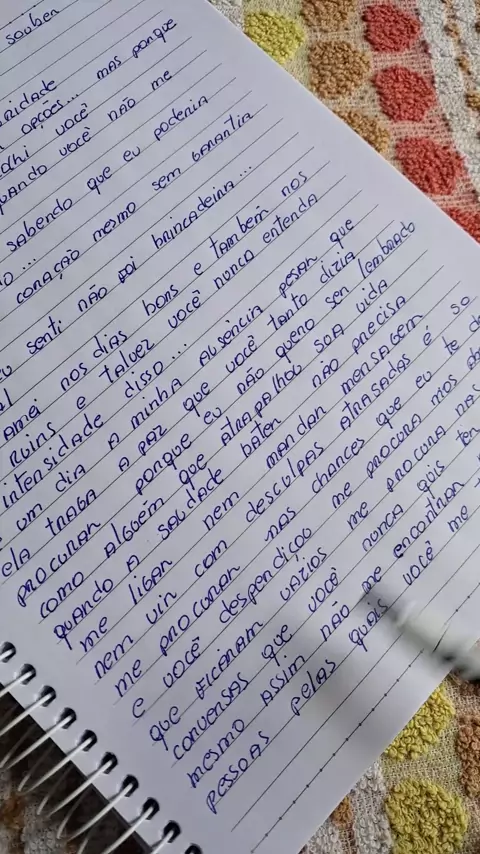 souber
opções... mas porque
você
quando você não me
sabendo que eu poderia
coração mesmo sem garantia
senti não foi brincadeira...
Amei nos dias bons e também nos
ruins e talvez você nunca entenda
intensidade disso...
um dia a minha ausência pesar que
ela traga a paz que você tanto dizia
procurar porque eu não quero ser lembrado
como alguém que atrapalhou sua vida
quando a saudade bater não precisa
me ligar nem mandar mensagem
nem vir com desculpas atrasadas é só
me procurar nas chances que eu te
e você desperdiçou me procura nos
que ficaram vazios me procura nas
conversas que você nunca quis ter
mesmo assim não me encontrar
pessoas pelas quais você me